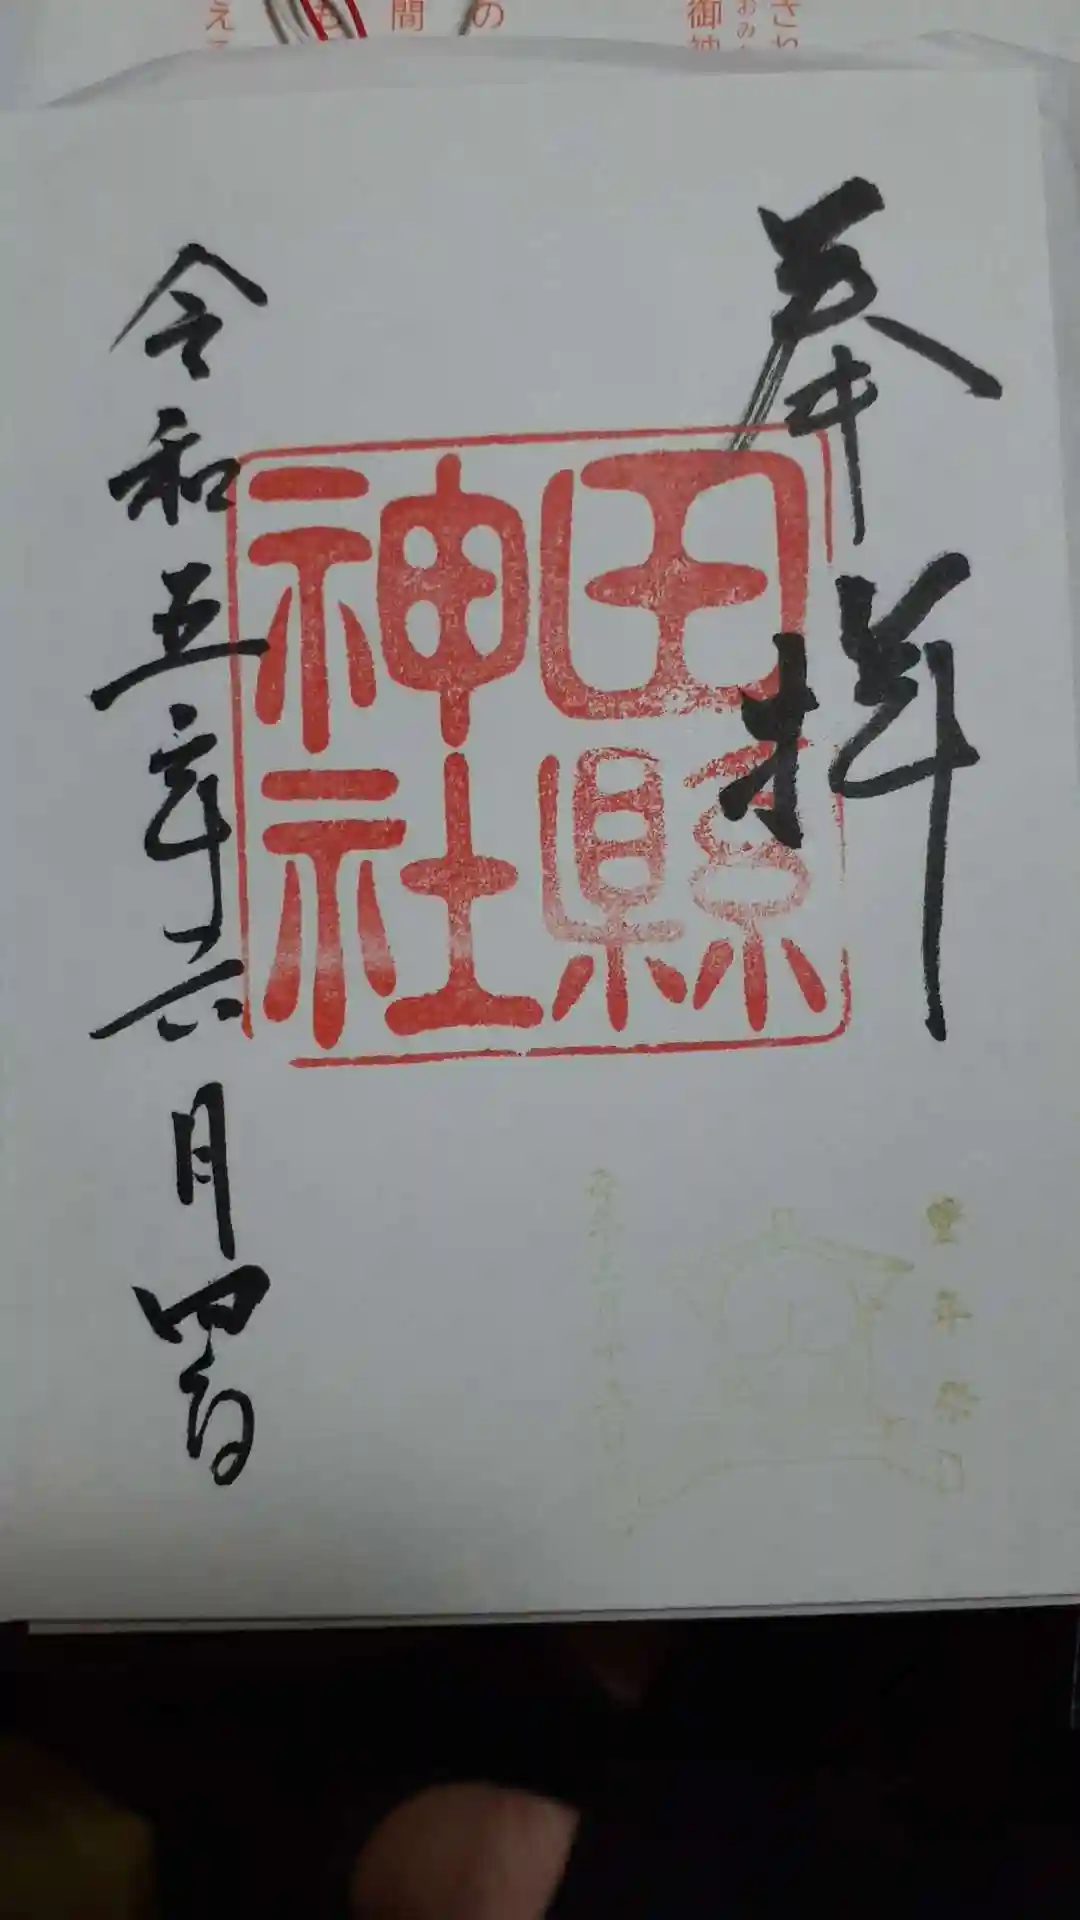 奉拝
田縣
神社
令和五年六月四日
豊年祭
の
間
え
御神
おみ
され